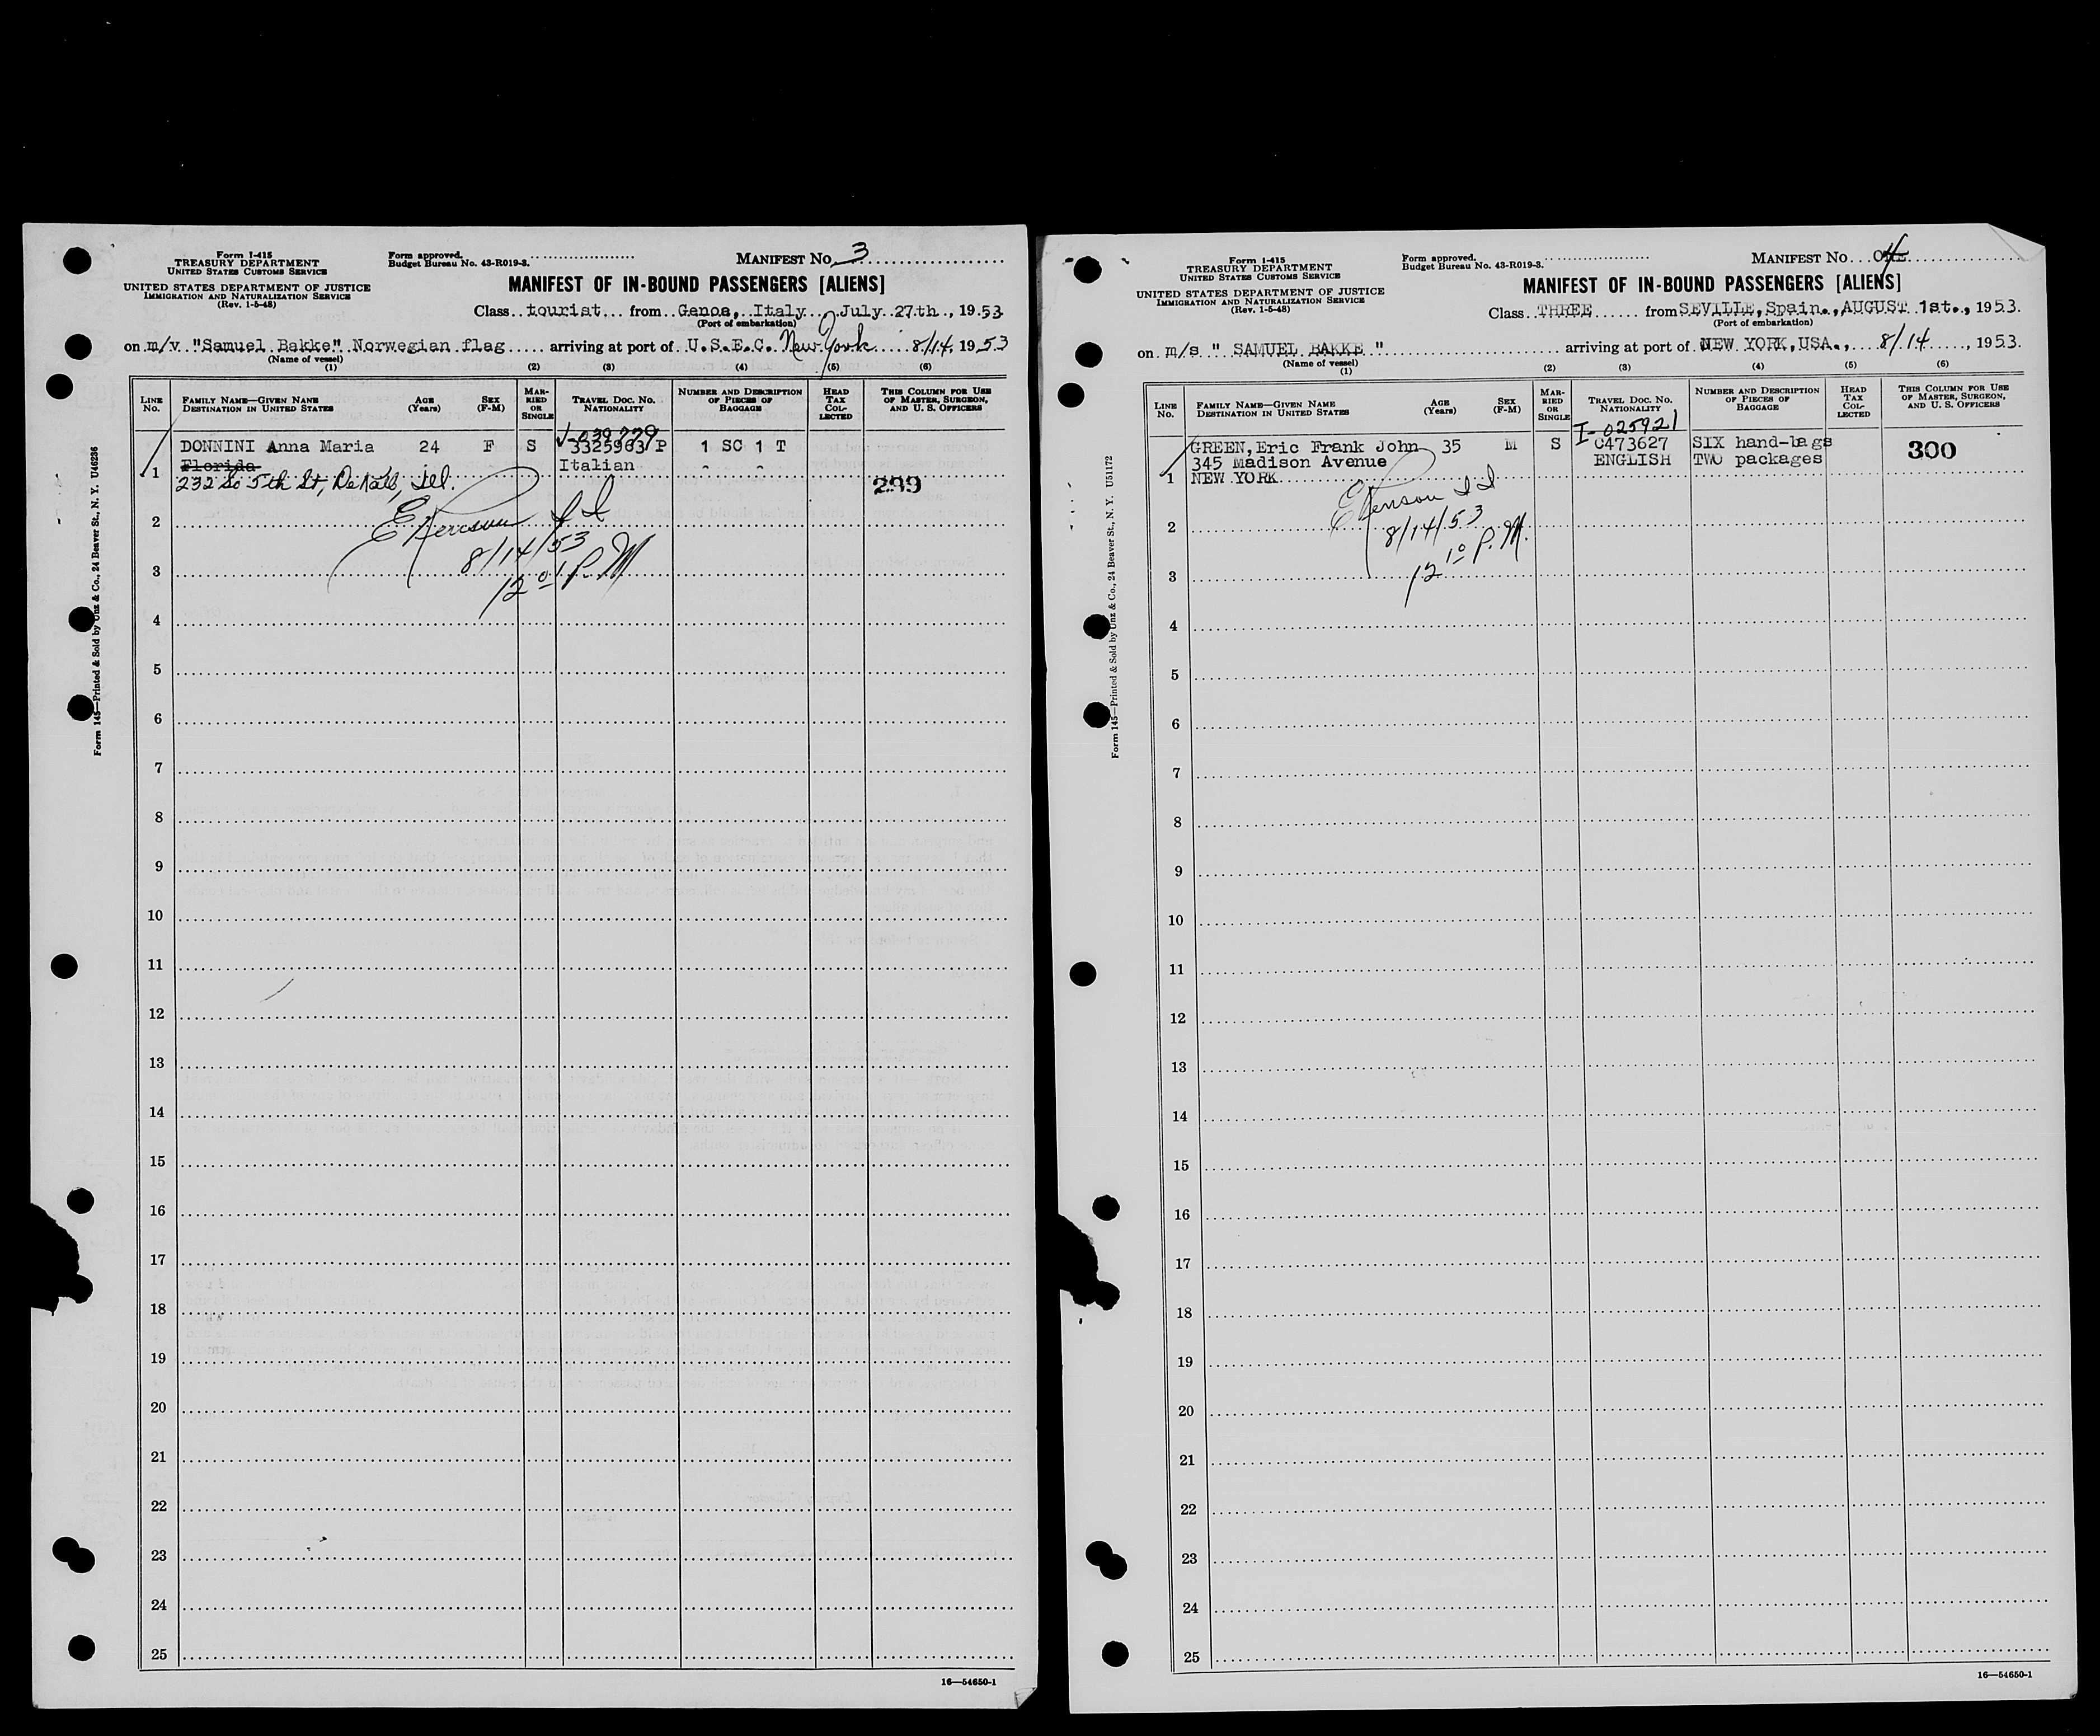 Form I-415
TREASURY DEPARTMENT
UNITED STATES CUSTOMS SERVICE
UNITED STATES DEPARTMENT OF JUSTICE
IMMIGRATION AND NATURALIZATION SERVICE
(Rev. 1-5-48)
Form approved.
Budget Bureau No. 43-R019-3.
MANIFEST No. 3
MANIFEST OF IN-BOUND PASSENGERS [ALIENS]
Class tourist from Genoa, Italy, July 27th, 1953
(Port of embarkation)
on m/v "Samuel Bakke" Norwegian flag arriving at port of U.S.E.C. New York 8/14, 1953
(Name of vessel)
(1) (2) (3) (4) (5) (6)
LINE No.
FAMILY NAME—GIVEN NAME
DESTINATION IN UNITED STATES
AGE (Years)
SEX (F-M)
MARRIED OR SINGLE
TRAVEL DOC. NO. NATIONALITY
NUMBER AND DESCRIPTION OF PIECES OF BAGGAGE
HEAD TAX COLLECTED
THIS COLUMN FOR USE OF MASTER, SURGEON, AND U. S. OFFICERS
DONNINI Anna Maria 24 F S 3325963 P 1 SC 1 T
Florida Italian
1 232 So 5th St, DeKalb, Ill. 299
2
8/14/53
3
4
5
6
7
8
9
10
11
12
13
14
15
16
17
18
19
20
21
22
23
24
25
Form 145—Printed & Sold by Unz & Co., 24 Beaver St., N. Y. U46236
16—54650-1
Form I-415
TREASURY DEPARTMENT
UNITED STATES CUSTOMS SERVICE
UNITED STATES DEPARTMENT OF JUSTICE
IMMIGRATION AND NATURALIZATION SERVICE
(Rev. 1-5-48)
Form approved.
Budget Bureau No. 43-R019-3.
MANIFEST No. 4
MANIFEST OF IN-BOUND PASSENGERS [ALIENS]
Class THREE from SEVILLE, Spain., AUGUST 1st., 1953.
(Port of embarkation)
on m/s " SAMUEL BAKKE " arriving at port of NEW YORK, USA., 8/14, 1953.
(Name of vessel)
(1) (2) (3) (4) (5) (6)
LINE No.
FAMILY NAME—GIVEN NAME
DESTINATION IN UNITED STATES
AGE (Years)
SEX (F-M)
MARRIED OR SINGLE
TRAVEL DOC. NO. NATIONALITY
NUMBER AND DESCRIPTION OF PIECES OF BAGGAGE
HEAD TAX COLLECTED
THIS COLUMN FOR USE OF MASTER, SURGEON, AND U. S. OFFICERS
I-025921
GREEN, Eric Frank John 35 M S 0473627 SIX hand-bags 300
345 Madison Avenue ENGLISH TWO packages
1 NEW YORK
2
8/14/53
3
4
5
6
7
8
9
10
11
12
13
14
15
16
17
18
19
20
21
22
23
24
25
Form 145—Printed & Sold by Unz & Co., 24 Beaver St., N. Y. U51172
16—54650-1